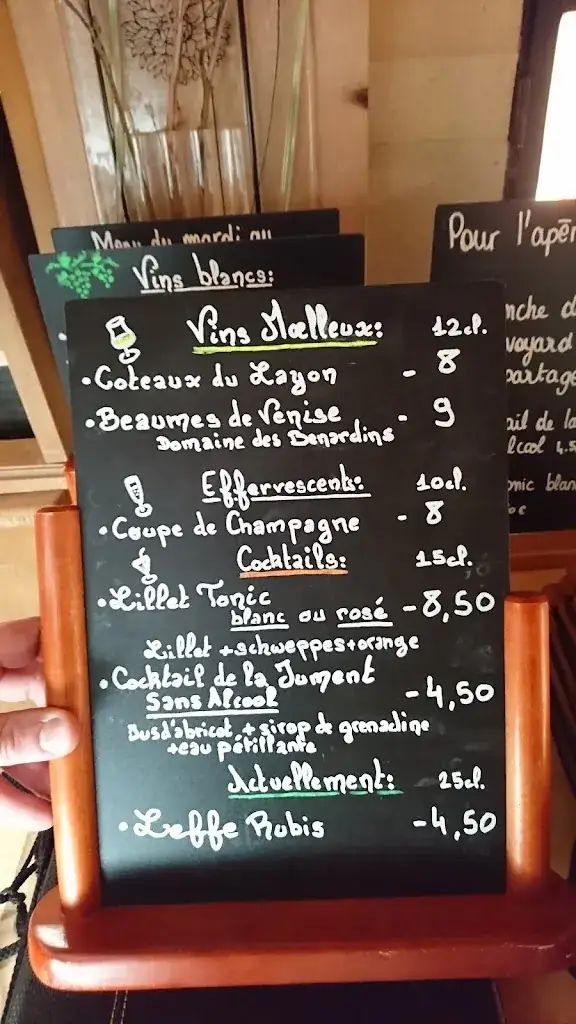 Menu du mardi au
Vins blancs:
Pour l'apér
Vins Mœlleux: 12cl.
•Coteaux du Layon - 8
•Beaumes de Venise - 9
Domaine des Benardins
Effervescents: 10cl.
•Coupe de Champagne - 8
Cocktails: 15cl.
•Lillet Tonic
blanc ou rosé - 8,50
Lillet +schweppes+orange
•Cocktail de la Jument
Sans Alcool - 4,50
Jus d'abricot, + sirop de grenadine
+eau pétillante
Actuellement: 25cl.
•Leffe Rubis - 4,50
nche d
voyard
partage
ail de la
lcool 4.5
onic blan